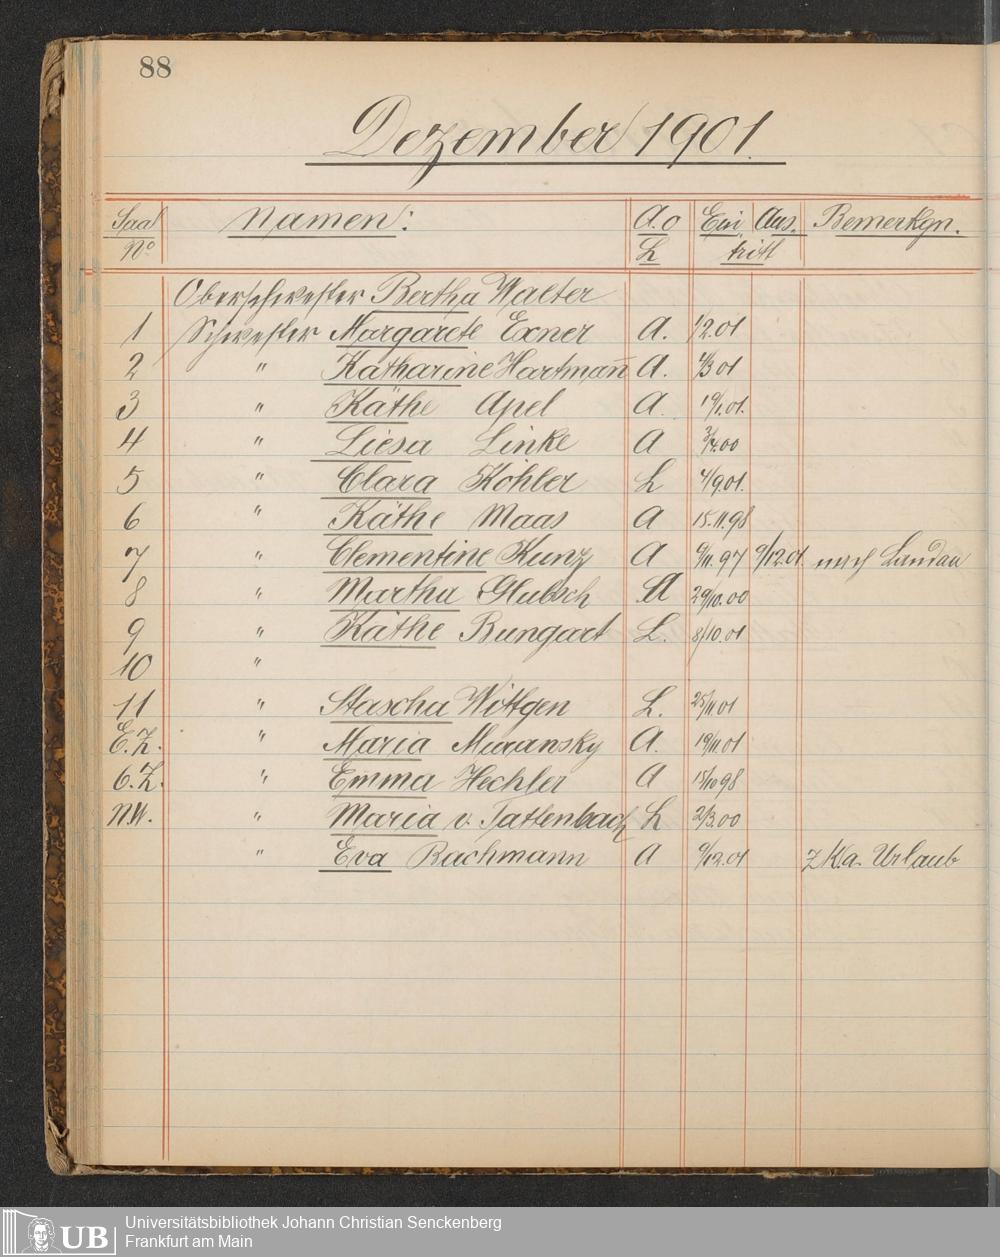 88
Dezember 1901.
Saal No Namen: A. o L Ein Aus. tritt Bemerkgn.
Oberschwester Bertha Walter
1 Schwester Margarete Exner A. 1/2.01
2 " Katharine Hartmann̄ A. 4/3 01
3 " Käthe Apel A. 19/1.01.
4 " Liesa Linke A 3/4.00
5 " Clara Köhler L 4/9.01.
6 " Käthe Maas A 15.11.98
7 " Clementine Kunz A 9/11.97 9/12.01. nach Landau
8 " Martha Glubsch A 29/10.00
9 " Käthe Bungart L. 8/10.01
10 "
11 " Stascha Wittgen L. 25/11 01
E.Z. " Maria Muransky A. 19/11.01
6.Z. " Emma Hechler A 15/10 98
N.W. " Maria v. Tattenbach L 2/3.00
" Eva Bachmann A 9/12.01 z.K.a. Urlaub
UB
Universitätsbibliothek Johann Christian Senckenberg
Frankfurt am Main